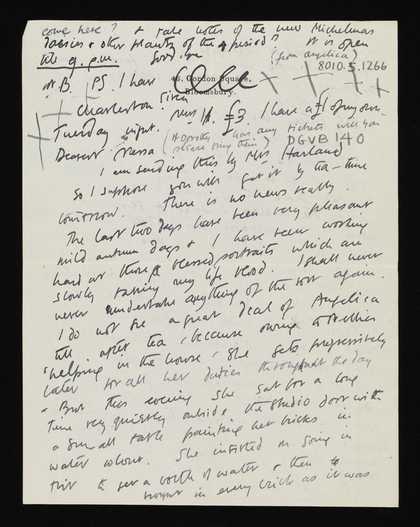 come here? & take notes of the new Michelmas
daisies & other plants of the period? It is open
till 9. p.m. Good bye (from Angelica)
8010.5.1266
N.B. PS I have
46, Gordon Square,
Bloomsbury.
Charleston given Mrs H. £3. I have a £1 of my own.
Tuesday night. (if Dorothy has any tickets will you
Dearest Nessa please buy them) DGVB 140
I am sending this by Mrs Harland
so I suppose you will get it by tea-time
tomorrow. There is no news really.
The last two days have been very pleasant
mild autumn days & I have been working
hard at those blessed portraits which are
slowly taking my life blood. I shall never
never undertake anything of the sort again.
I do not see a great deal of Angelica
till after tea, because owing to Nellies
'helping in the house', she gets progressively
later for all her duties throughout the day
But this evening she sat for a long
time very quietly outside the studio door with
a small table painting her bricks in
water colour. She insisted on going in
first to get a with of water & then to
in every brick as it was